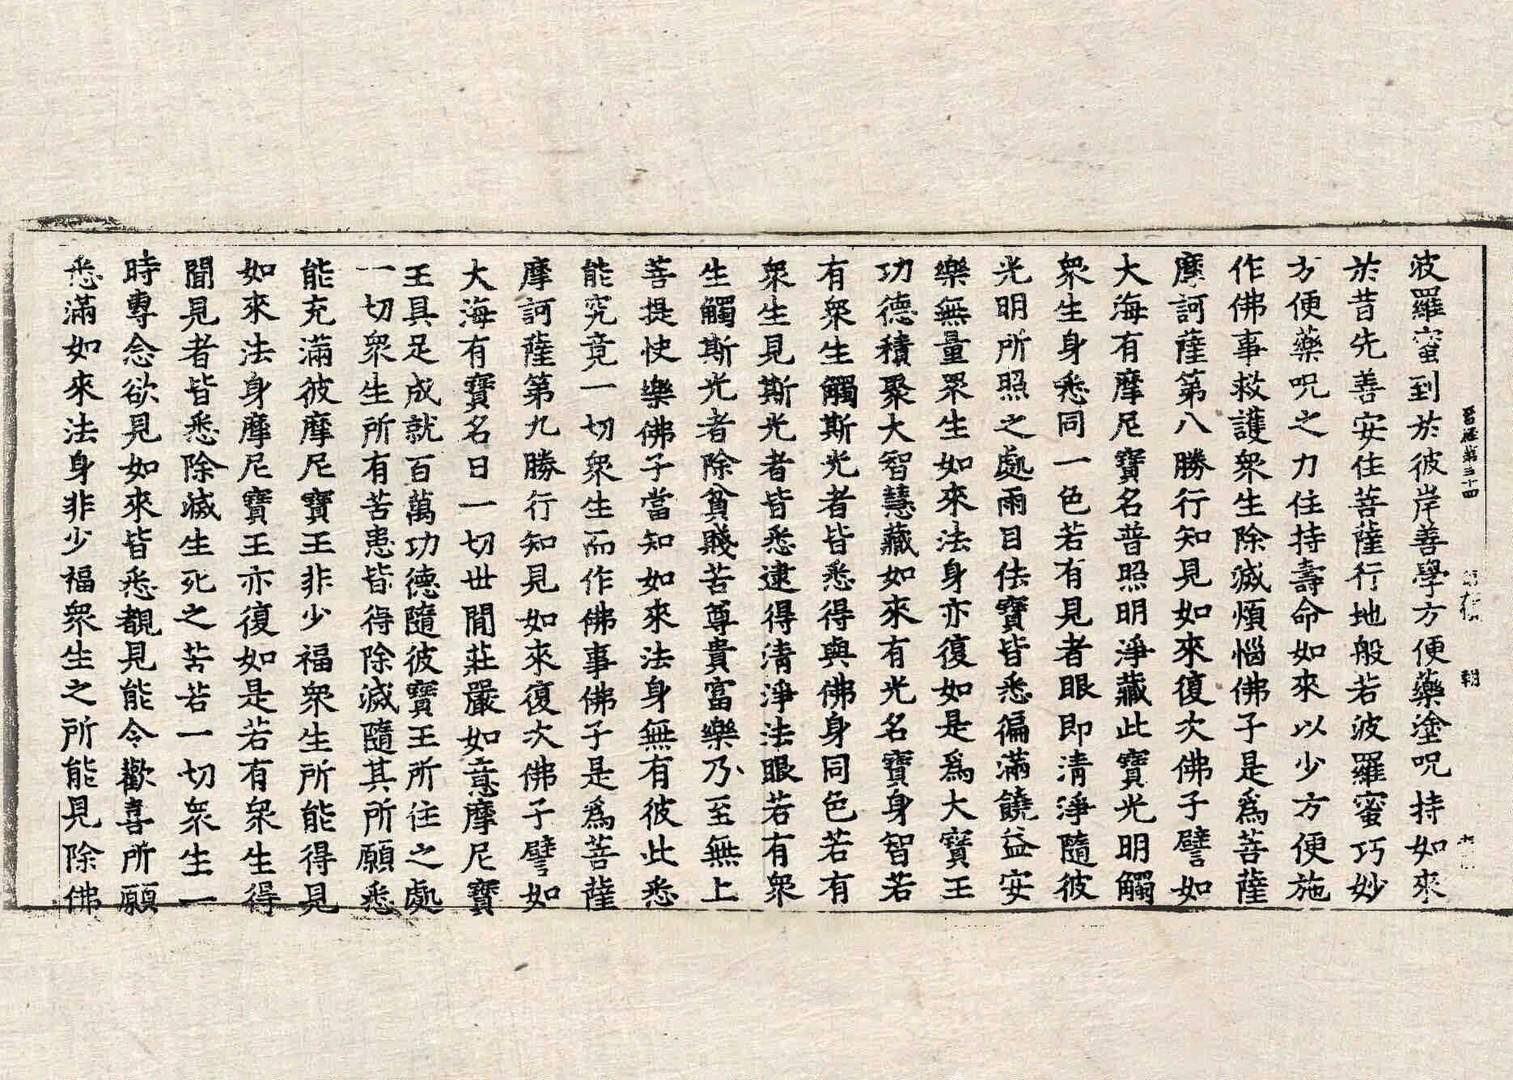 晉經第三十四
波羅蜜到於彼岸善學方便藥塗呪持如來
於昔先善安住菩薩行地般若波羅蜜巧妙
方便藥呪之力住持壽命如來以少方便施
作佛事救護眾生除滅煩惱佛子是為菩薩
摩訶薩第八勝行知見如來復次佛子譬如
大海有摩尼寶名普照明淨藏此寶光明觸
眾生身悉同一色若有見者眼即清淨隨彼
光明所照之處雨目佉寶皆悉徧滿饒益安
樂無量眾生如來法身亦復如是為大寶王
功德積聚大智慧藏如來有光名寶身智若
有眾生觸斯光者皆悉得與佛身同色若有
眾生見斯光者皆悉逮得清淨法眼若有眾
生觸斯光者除貧賤苦尊貴富樂乃至無上
菩提快樂佛子當知如來法身無有彼此悉
能究竟一切眾生而作佛事佛子是為菩薩
摩訶薩第九勝行知見如來復次佛子譬如
大海有寶名曰一切世間莊嚴如意摩尼寶
王具足成就百萬功德隨彼寶王所住之處
一切眾生所有苦患皆得除滅隨其所願悉
能充滿彼摩尼寶王非少福眾生所能得見
如來法身摩尼寶王亦復如是若有眾生得
聞見者皆悉除滅生死之苦若一切眾生一
時專念欲見如來皆悉覩見能令歡喜所願
悉滿如來法身非少福眾生之所能見除佛